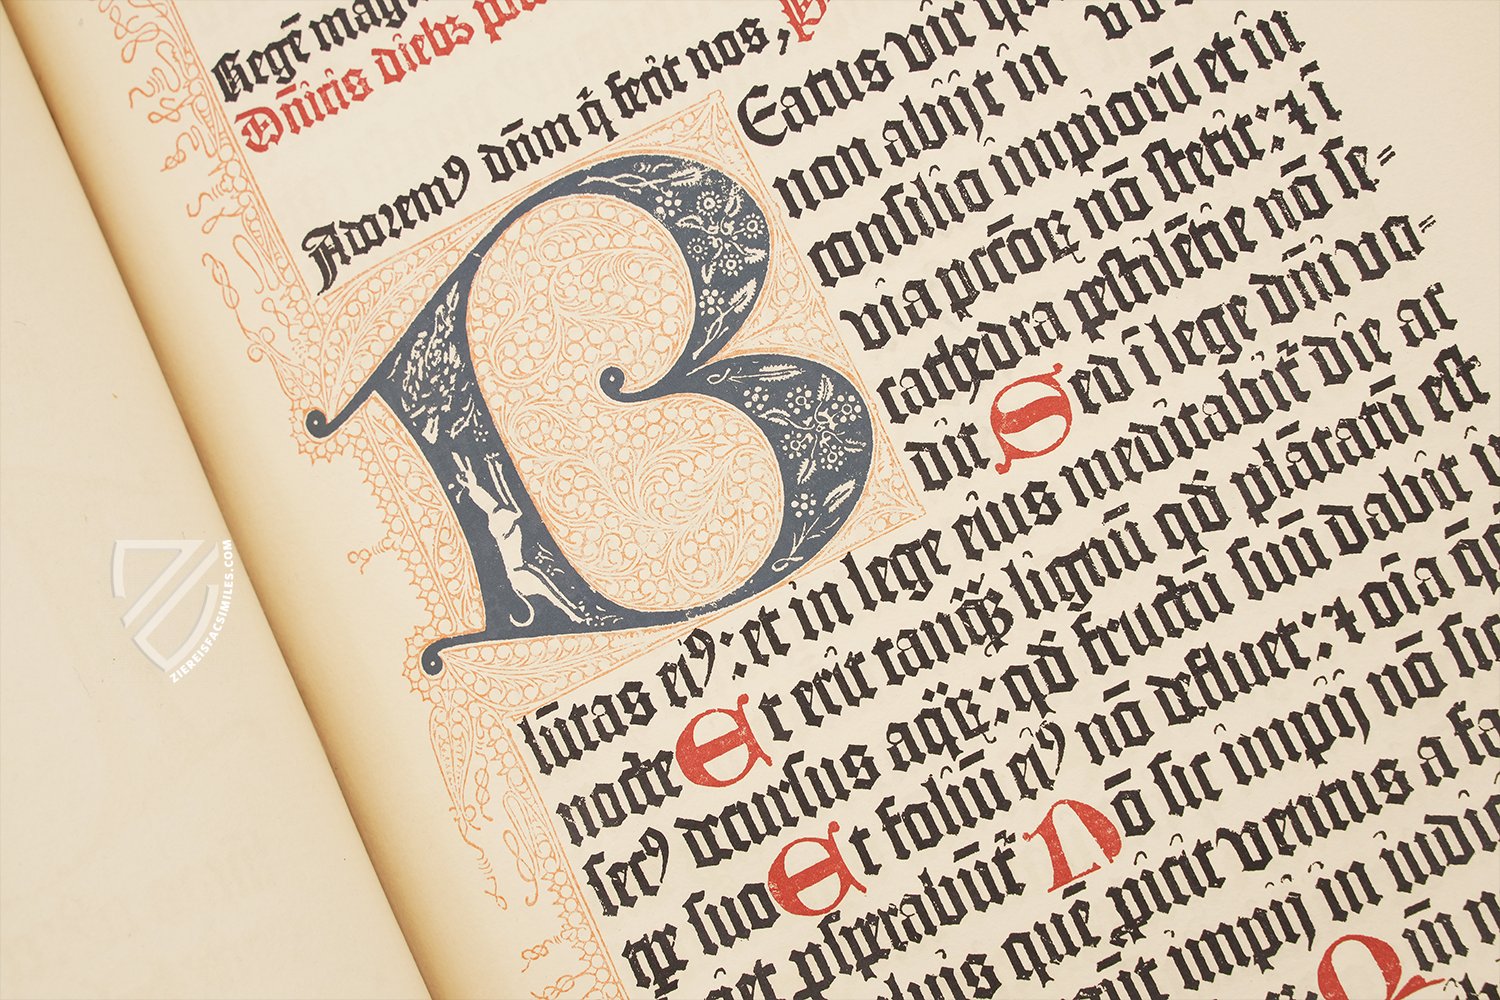 Regē mag
Dn̄icis diebꝫ p
Adoremꝰ dn̄m q̇ fecit nos,
BEatus vir q
non abijt in
consilio impiorū et in
via pcc̄oꝝ nō stetit: ⁊ ī
cathedra pestilētie nō se⸗
dit Sed ī lege dn̄i vo⸗
lūtas eiꝰ: et in lege eius meditabit᷑ die ac
nocte Et erit tanqꝫ lignū qd̓ plātatū est
secꝰ decursus aqꝝ: qd̓ fructū suū dabit i
tpe suo Et foliū eiꝰ nō defluet: ⁊ oīa q̄
psperabūt᷑ Nō sic impij nō sic
quē ꝓicit ventus a fa
impij in iudic
ZIEREISFACSIMILES.COM